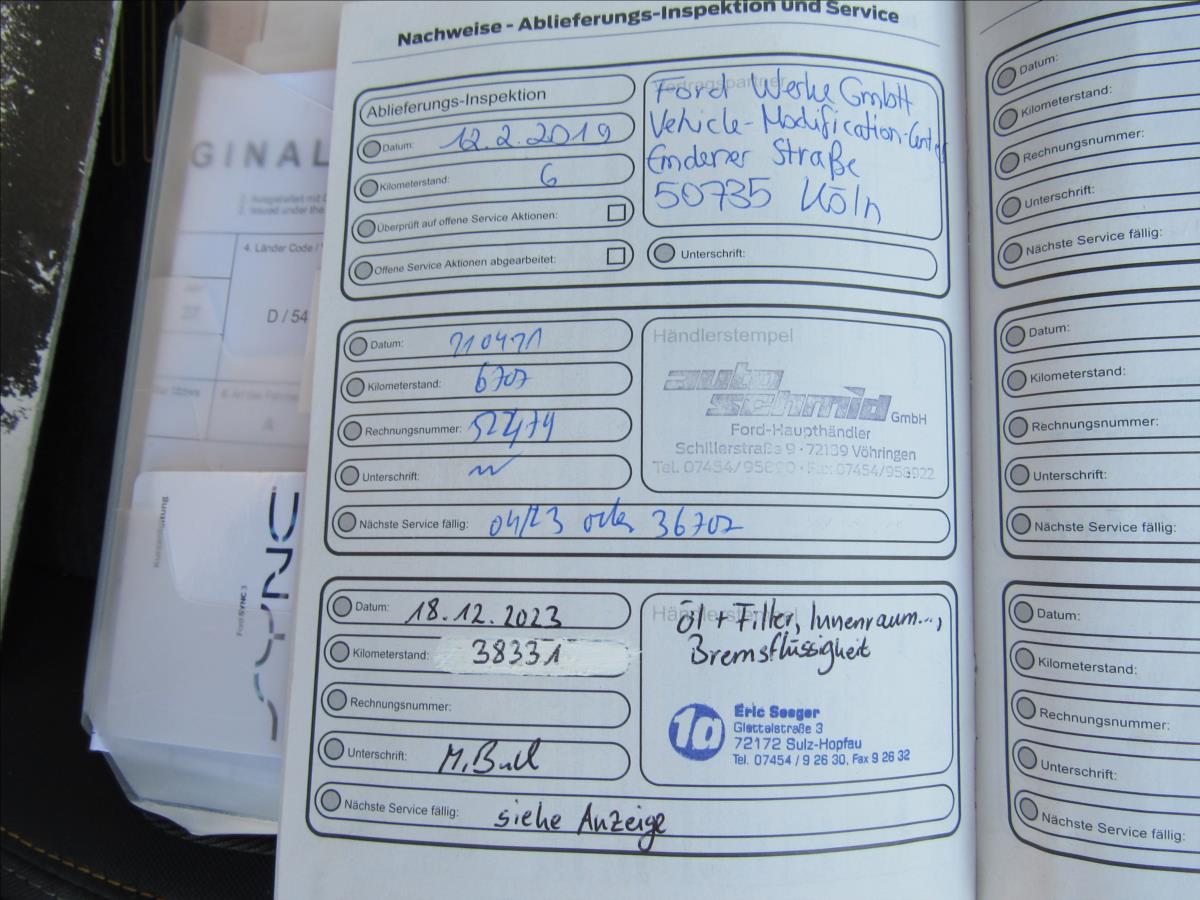 Nachweise - Ablieferungs-Inspektion und Service
Ablieferungs-Inspektion
Datum: 12.2.2019
Kilometerstand: 6
Überprüft auf offene Service Aktionen:
Offene Service Aktionen abgearbeitet:
Vertragspartner
Ford Werke GmbH
Vehicle-Modification-Center
Emdener Straße
50735 Köln
Unterschrift:
Datum: 210421
Kilometerstand: 6707
Rechnungsnummer:
Unterschrift:
Nächste Service fällig: 04/23 oder 36707
Händlerstempel
auto
schmid GmbH
Ford-Haupthändler
Schillerstraße 9 · 72189 Vöhringen
Tel. 07454/95 Fax 07454/958922
Datum: 18.12.2023
Kilometerstand: 38331
Rechnungsnummer:
Unterschrift: M.
Nächste Service fällig: siehe Anzeige
Händlerstempel
Öl + Filter, Innenraum...,
Bremsflüssigkeit
1a
Eric Seeger
Glattalstraße 3
72172 Sulz-Hopfau
Tel. 07454 / 9 26 30, Fax 9 26 32
Datum:
Kilometerstand:
Rechnungsnummer:
Unterschrift:
Nächste Service fällig:
Datum:
Kilometerstand:
Rechnungsnummer:
Unterschrift:
Nächste Service fällig:
Datum:
Kilometerstand:
Rechnungsnummer:
Unterschrift:
Nächste Service fällig:
GINAL
4. Länder Code /
D / 54
A
Ford SYNC 3
SYNC